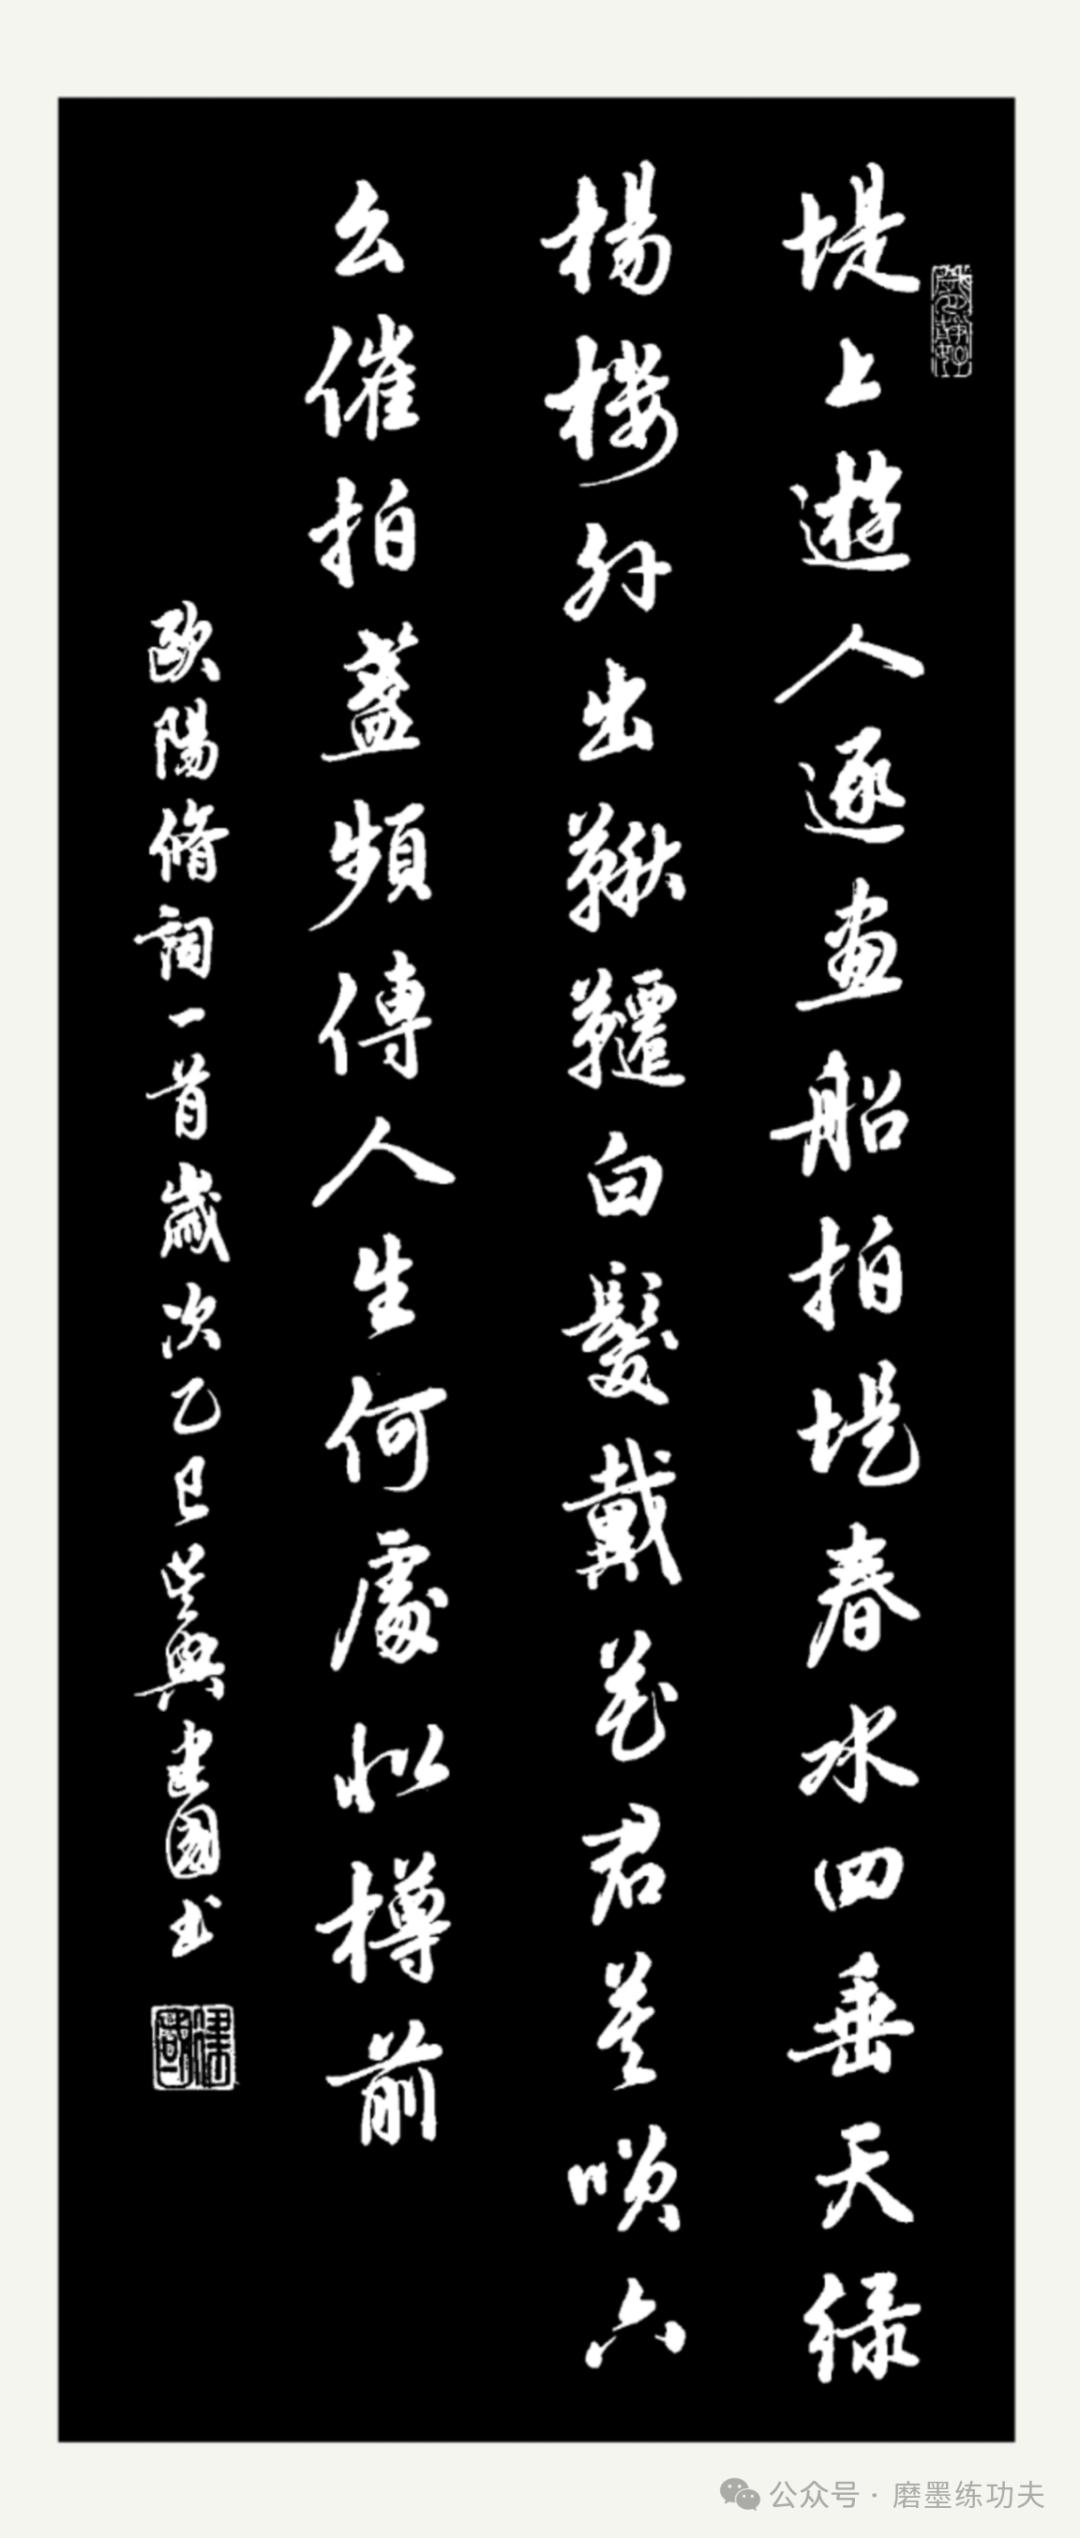 堤上遊人逐畫船拍堤春水四垂天緑
楊楼外出鞦韆白髮戴花君莫唢六
幺催拍盞頻傳人生何處似樽前
歐陽脩詞一首歲次乙巳吴興建國书
建國
公众号·磨墨练功夫